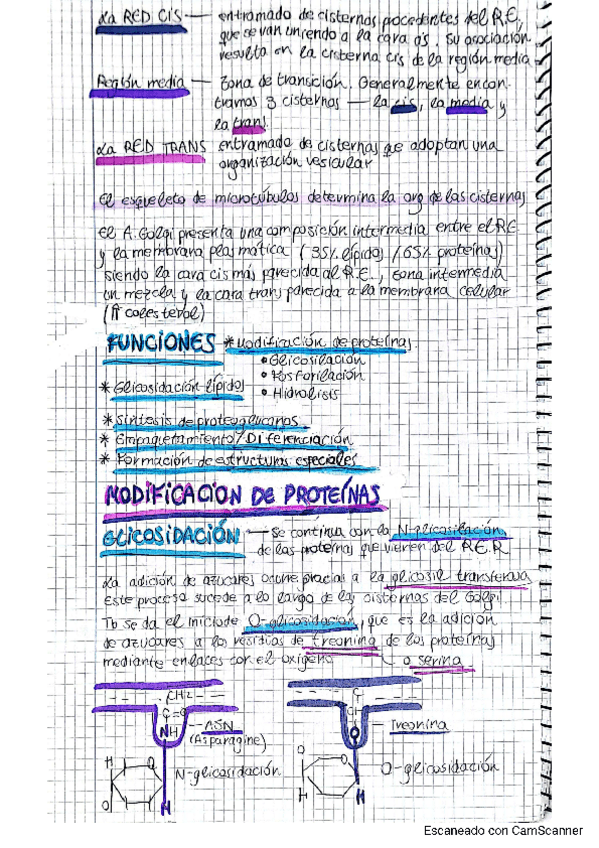 La RED CIS — entramado de cisternas pocedentes del R.E,
que se van uniendo a la cara cis. Su asociación
resulta en la cisterna cis de la región media
Región media — Zona de transición. Generalmente encon-
tramos 3 cisternas — la cis, la media y
la trans.
La RED TRANS entramado de cisternas que adoptan una
organización vesicular
El esqueleto de microtúbulos determina la org de las cisternas
El A. Golgi presenta una composición intermedia entre el R.E
y la membrana plasmática (35% lípidos / 65% proteínas)
siendo la cara cis más parecida al R.E., zona intermedia
un mezcla y la cara trans parecida a la membrana celular
(↑ colesterol)
FUNCIONES * Modificación de proteínas
• Glicosilación
• Fosforilación
* Glicosidación lípidos • Hidrolisis
* Síntesis de proteoglucanos
* Empaquetamiento / Diferenciación
* Formación de estructuras especiales
MODIFICACION DE PROTEÍNAS
GLICOSIDACIÓN — Se continua con la N-glicosilación
de las proteínas que vienen del R.E.R
La adición de azúcares ocurre gracias a la glicosil transferasa
Este proceso sucede a lo largo de las cisternas del Golgi
Tb se da el inicio de O-glicosidación, que es la adición
de azucares a los residuos de treonina de los proteínas
mediante enlaces con el oxígeno o serina
CH2 C
C=O CH
NH — ASN O — Treonina
(Asparagine)
H O N-glicosidación O O O-glicosidación
O H O H
Escaneado con CamScanner